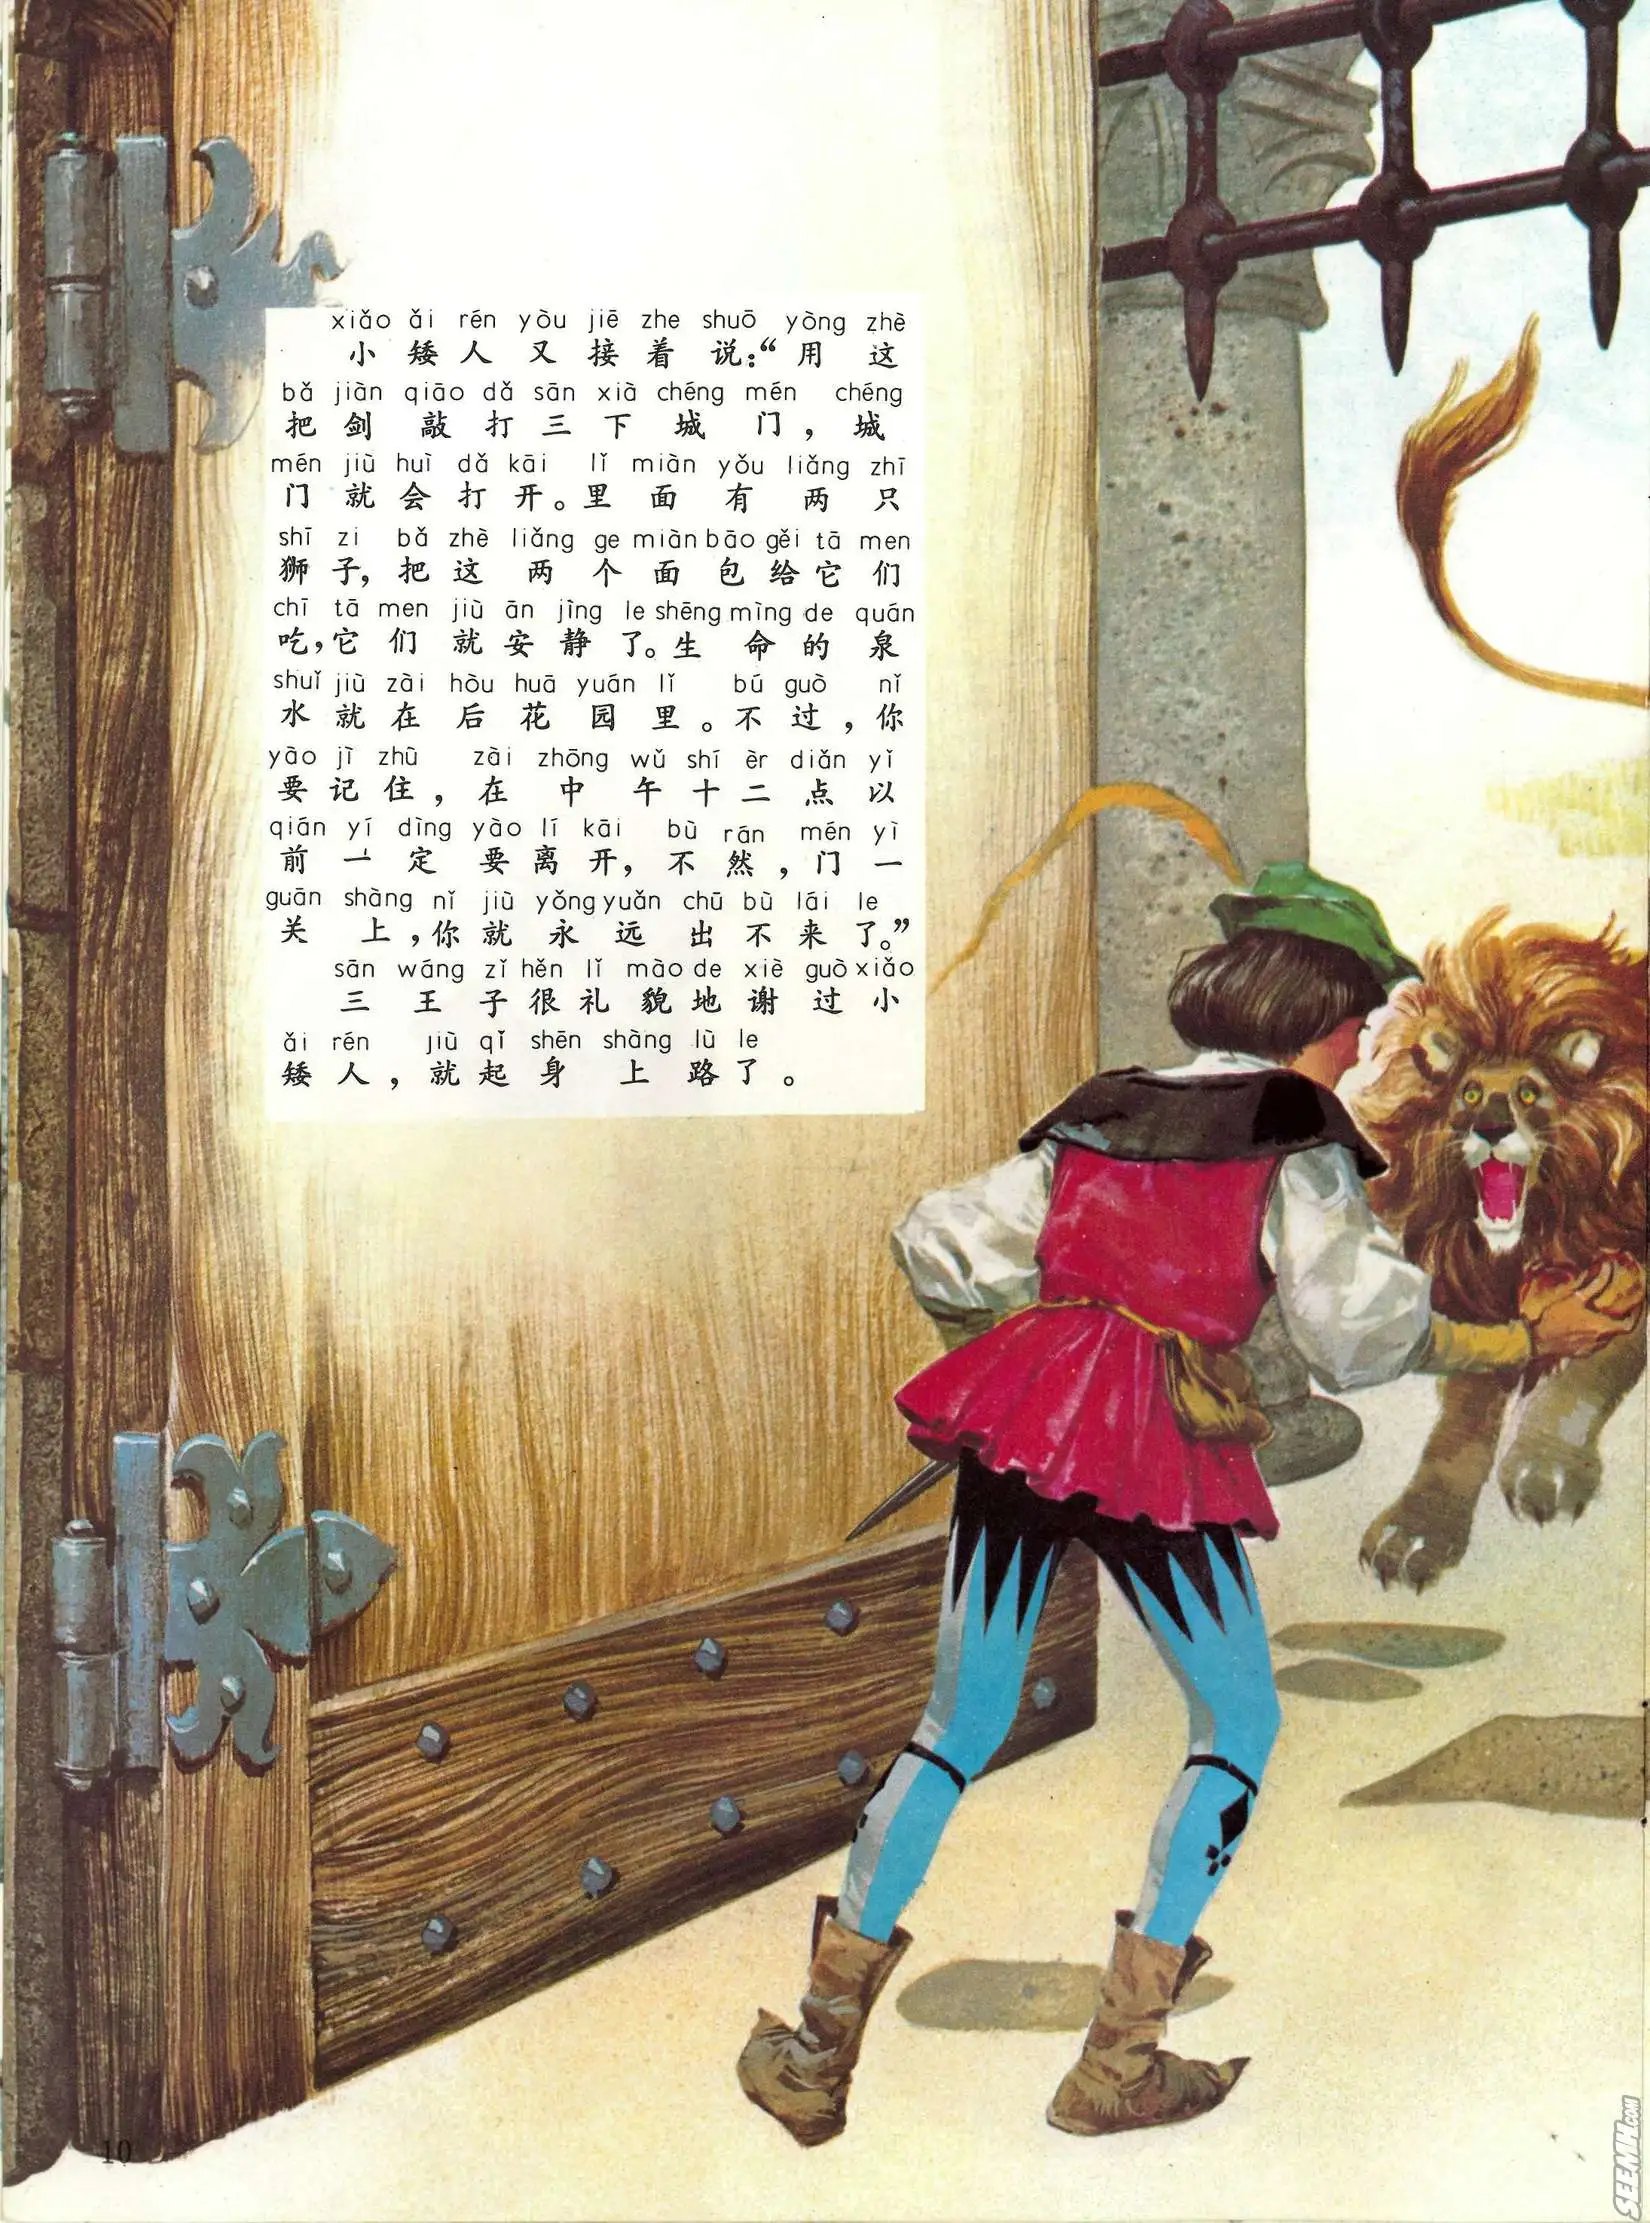 xiǎo ǎi rén yòu jiē zhe shuō yòng zhè
小矮人又接着说：“用这
bǎ jiàn qiāo dǎ sān xià chéng mén chéng
把剑敲打三下城门，城
mén jiù huì dǎ kāi lǐ miàn yǒu liǎng zhī
门就会打开。里面有两只
shī zi bǎ zhè liǎng ge miàn bāo gěi tā men
狮子，把这两个面包给它们
chī tā men jiù ān jìng le shēng mìng de quán
吃，它们就安静了。生命的泉
shuǐ jiù zài hòu huā yuán lǐ bú guò nǐ
水就在后花园里。不过，你
yào jì zhù zài zhōng wǔ shí èr diǎn yǐ
要记住，在中午十二点以
qián yí dìng yào lí kāi bù rán mén yì
前一定要离开，不然，门一
guān shàng nǐ jiù yǒng yuǎn chū bù lái le
关上，你就永远出不来了。”
sān wáng zǐ hěn lǐ mào de xiè guò xiǎo
三王子很礼貌地谢过小
ǎi rén jiù qǐ shēn shàng lù le
矮人，就起身上路了。
10
SEEMH.COM